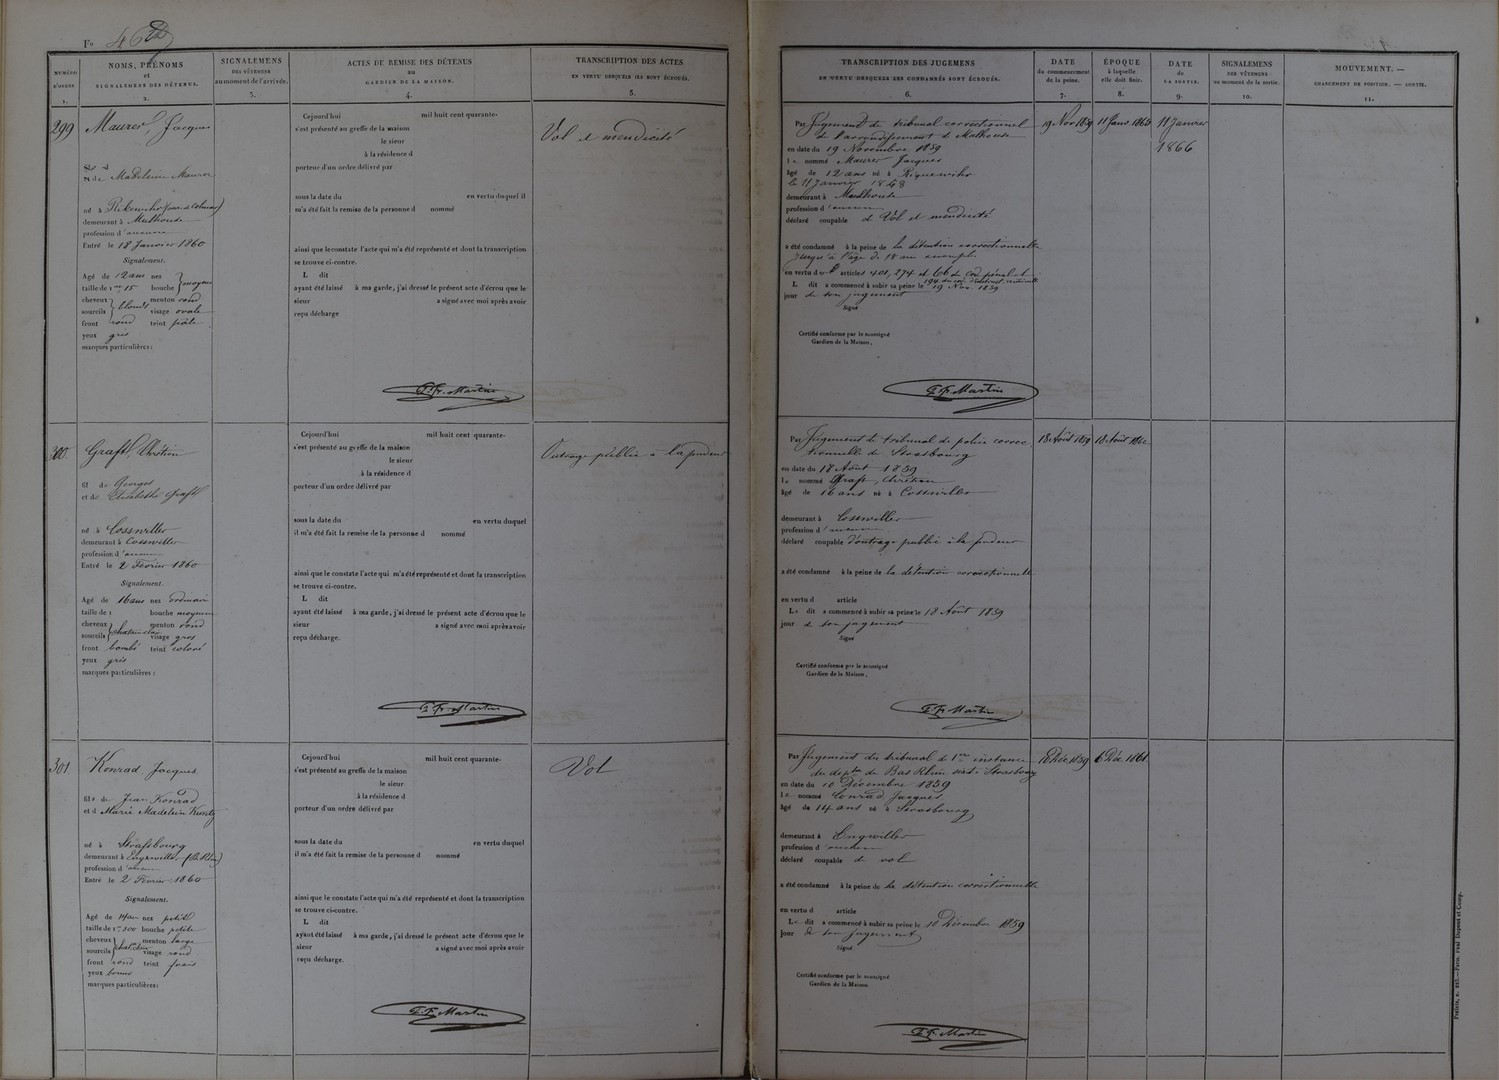 Fo 46
NUMÉRO D'ORDRE 1.
NOMS, PRÉNOMS et SIGNALEMENS DES DÉTENUS. 2.
SIGNALEMENS DES VÊTEMENS au moment de l'arrivée. 3.
ACTES DE REMISE DES DÉTENUS au GARDIEN DE LA MAISON. 4.
TRANSCRIPTION DES ACTES EN VERTU DESQUELS ILS SONT ÉCROUÉS. 5.
TRANSCRIPTION DES JUGEMENS EN VERTU DESQUELS LES CONDAMNÉS SONT ÉCROUÉS. 6.
DATE du commencement de la peine. 7.
ÉPOQUE à laquelle elle doit finir. 8.
DATE de LA SORTIE. 9.
SIGNALEMENS DES VÊTEMENS au moment de la sortie. 10.
MOUVEMENT. — CHANGEMENT DE POSITION. — SORTIE. 11.
299
Maurer, Jacques
de Madeleine Maurer
né à
demeurant à Mulhouse
profession d'aucune
Entré le 18 Janvier 1860
Signalement.
Agé de 12 ans nes
taille de 1m 15 bouche moyen
cheveux menton rond
sourcils blonds visage ovale
front rond teint pâle
yeux gris
marques particulières:
Cejourd'hui mil huit cent quarante-
s'est présenté au greffe de la maison
le sieur
à la résidence d
porteur d'un ordre délivré par
sous la date du en vertu duquel il
m'a été fait la remise de la personne d nommé
ainsi que le constate l'acte qui m'a été représenté et dont la transcription
se trouve ci-contre.
L dit
ayant été laissé à ma garde, j'ai dressé le présent acte d'écrou que le
sieur a signé avec moi après avoir
reçu décharge
Martin
Vol et mendicité
Par Jugement du tribunal correctionnel
de l'arrondissement de Mulhouse
en date du 19 Novembre 1859
le nommé Maurer Jacques
âgé de 12 ans né à Riquewihr
le 11 Janvier 1848
demeurant à Mulhouse
profession d'aucune
déclaré coupable de Vol et mendicité
a été condamné à la peine de la détention correctionnelle
jusqu'à l'âge de 18 ans
en vertu des articles 401, 274 et 66 du Code pénal et
194 du code d'instruct. criminelle
L dit a commencé à subir sa peine le 19 Nov. 1859
jour de son jugement
Signé
Certifié conforme par le soussigné
Gardien de la Maison.
Martin
19 Nov 1859
11 Janv 1866
11 Janvier
1866
300
Graff, Chrétien
fil de Georges
et de Elisabethe Graff
né à Cosswiller
demeurant à Cosswiller
profession d'aucune
Entré le 2 Février 1860
Signalement.
Agé de 16 ans nes ordinaire
taille de 1 bouche moyenne
cheveux menton rond
sourcils visage gros
front bombé teint coloré
yeux gris
marques particulières:
Cejourd'hui mil huit cent quarante-
s'est présenté au greffe de la maison
le sieur
à la résidence d
porteur d'un ordre délivré par
sous la date du en vertu duquel
il m'a été fait la remise de la personne d nommé
ainsi que le constate l'acte qui m'a été représenté et dont la transcription
se trouve ci-contre.
L dit
ayant été laissé à ma garde, j'ai dressé le présent acte d'écrou que le
sieur a signé avec moi après avoir
reçu décharge.
Martin
Outrage public à la pudeur
Par Jugement du tribunal de police correc
tionnelle de Strasbourg
en date du 18 Août 1859
le nommé Graff, Chrétien
âgé de 16 ans né à Cosswiller
demeurant à Cosswiller
profession d'aucune
déclaré coupable d'outrage public à la pudeur
a été condamné à la peine de la détention correctionnelle
en vertu d article
Le dit a commencé à subir sa peine le 18 Août 1859
jour de son jugement
Signé
Certifié conforme par le soussigné
Gardien de la Maison.
Martin
18 Août 1859
18 Août
301
Konrad Jacques
fils de Jean Konrad
et d Marie Madelein Kuntz
né à Strasbourg
demeurant à
profession d'aucune
Entré le 2 Février 1860
Signalement.
Agé de 14 ans nes petit
taille de 1m 300 bouche petite
cheveux menton large
sourcils visage rond
front rond teint frais
yeux bruns
marques particulières:
Cejourd'hui mil huit cent quarante-
s'est présenté au greffe de la maison
le sieur
à la résidence d
porteur d'un ordre délivré par
sous la date du en vertu duquel
il m'a été fait la remise de la personne d nommé
ainsi que le constate l'acte qui m'a été représenté et dont la transcription
se trouve ci-contre.
L dit
ayant été laissé à ma garde, j'ai dressé le présent acte d'écrou que le
sieur a signé avec moi après avoir
reçu décharge.
Martin
Vol
Par Jugement du tribunal de 1re instance
du dept du Bas Rhin Strasbourg
en date du 10 Décembre 1859
le nommé Conrad Jacques
âgé de 14 ans né à Strasbourg
demeurant à Engwiller
profession d'aucune
déclaré coupable de vol
a été condamné à la peine de la détention correctionnelle
en vertu d article
Le dit a commencé à subir sa peine le 10 Décembre 1859
jour de son jugement
Signé
Certifié conforme par le soussigné
Gardien de la Maison.
Martin
10 Déc 1859
Déc 1861
Paris. Paul Dupont et Comp.